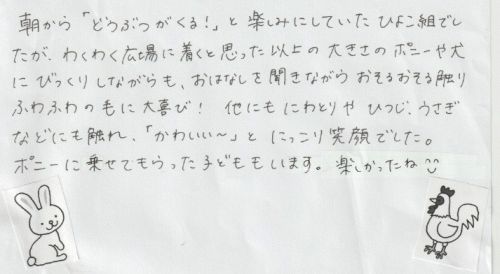 朝から「どうぶつがくる！」と楽しみにしていたひよこ組でし
たが、わくわく広場に着くと思った以上の大きさのポニーや犬
にびっくりしながらも、おはなしを聞きながらおそるおそる触り
ふわふわの毛に大喜び！ 他にもにわとりやひつじ、うさぎ
などにも触れ、「かわいい～」とにっこり笑顔でした。
ポニーに乗せてもらった子どももいます。楽しかったね